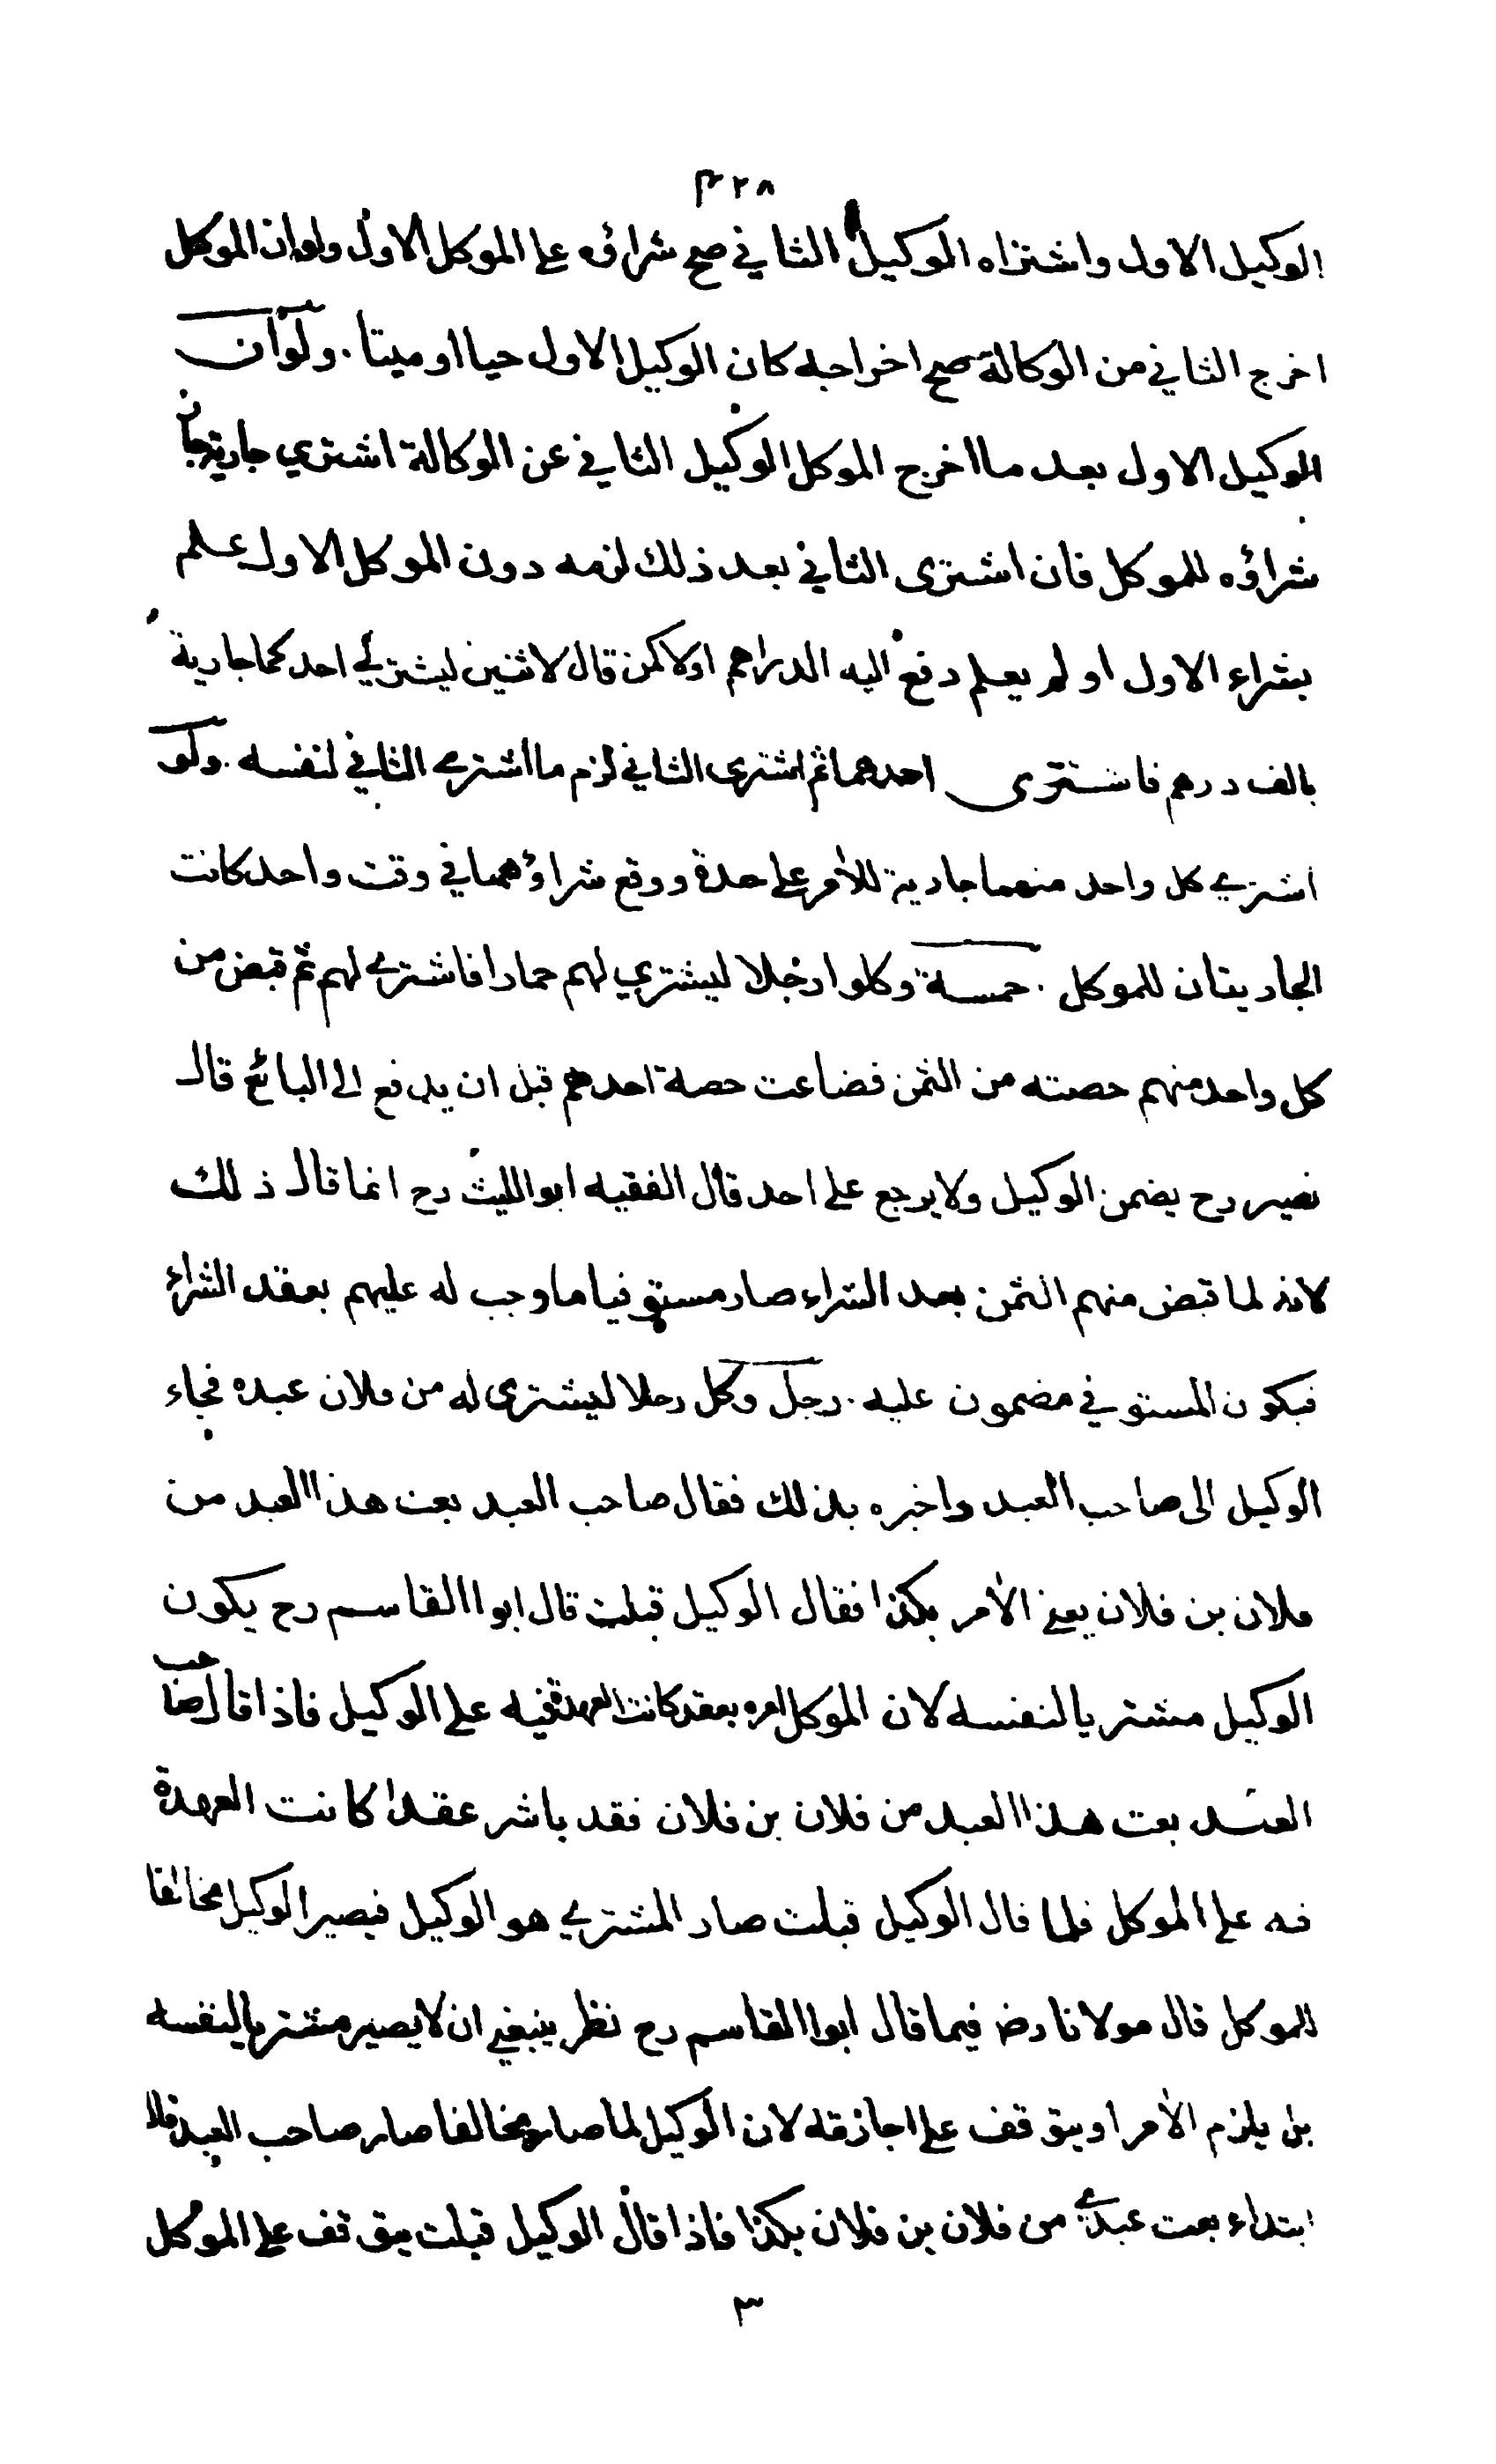 ٣٢٨
الوكيل الاول واشتراه الوكيل الثاني صح شراؤه على الموكل الاول ولو ان الموكل
اخرج الثاني من الوكالة صح اخراجه كان الوكيل الاول حيا او ميتا . ولو ان
الوكيل الاول بعد ما اخرج الموكل الوكيل الثاني عن الوكالة اشتري جارية جاز
شراؤه للموكل فان اشترى الثاني بعد ذلك لزمه دون الموكل الاول علم
بشراء الاول او لم يعلم دفع اليه الدراهم اولا كمن قال لاثنين ليشتر لي احدكما جارية
بالف درهم فاشترى احدهما ثم اشترى الثاني لزم ما اشترى الثاني لنفسه . ولو
اشترى كل واحد منهما جارية للآمر على حدة ووقع شراؤهما في وقت واحد كانت
الجاريتان للموكل . خمسة وكلوا رجلا ليشتري لهم حمارا فاشترى لهم ثم قبض من
كل واحد منهم حصته من الثمن فضاعت حصة احدهم قبل ان يدفع الى البائع قال
نصير رح يضمن الوكيل ولا يرجع على احد قال الفقيه ابو الليث رح انما قال ذلك
لانه لما قبض منهم الثمن بعد الشراء صار مستوفيا ما وجب له عليهم بعقد الشراء
فيكون المستوفي مضمون عليه . رجل وكل رجلا ليشترى له من فلان عبده فجاء
الوكيل الى صاحب العبد واخبره بذلك فقال صاحب العبد بعت هذا العبد من
فلان بن فلان يعني الآمر بكذا فقال الوكيل قبلت قال ابو القاسم رح يكون
الوكيل مشتريا لنفسه لان الموكل امره بعقد كانت العهدة فيه على الوكيل فاذا قال صاحب
العبد بعت هذا العبد من فلان بن فلان فقد باشر عقدا كانت العهدة
فيه على الموكل فلما قال الوكيل قبلت صار المشتري هو الوكيل فيصير الوكيل مخالفا
للموكل قال مولانا رض فيما قال ابو القاسم رح نظر ينبغي ان لا يصير مشتريا لنفسه
بل يلزم الآمر او يتوقف على اجازته لان الوكيل لما صار مخالفا صار صاحب العبد قائلا
ابتداء بعت عبدي من فلان بن فلان بكذا فاذا قال الوكيل قبلت يتوقف على الموكل
٣